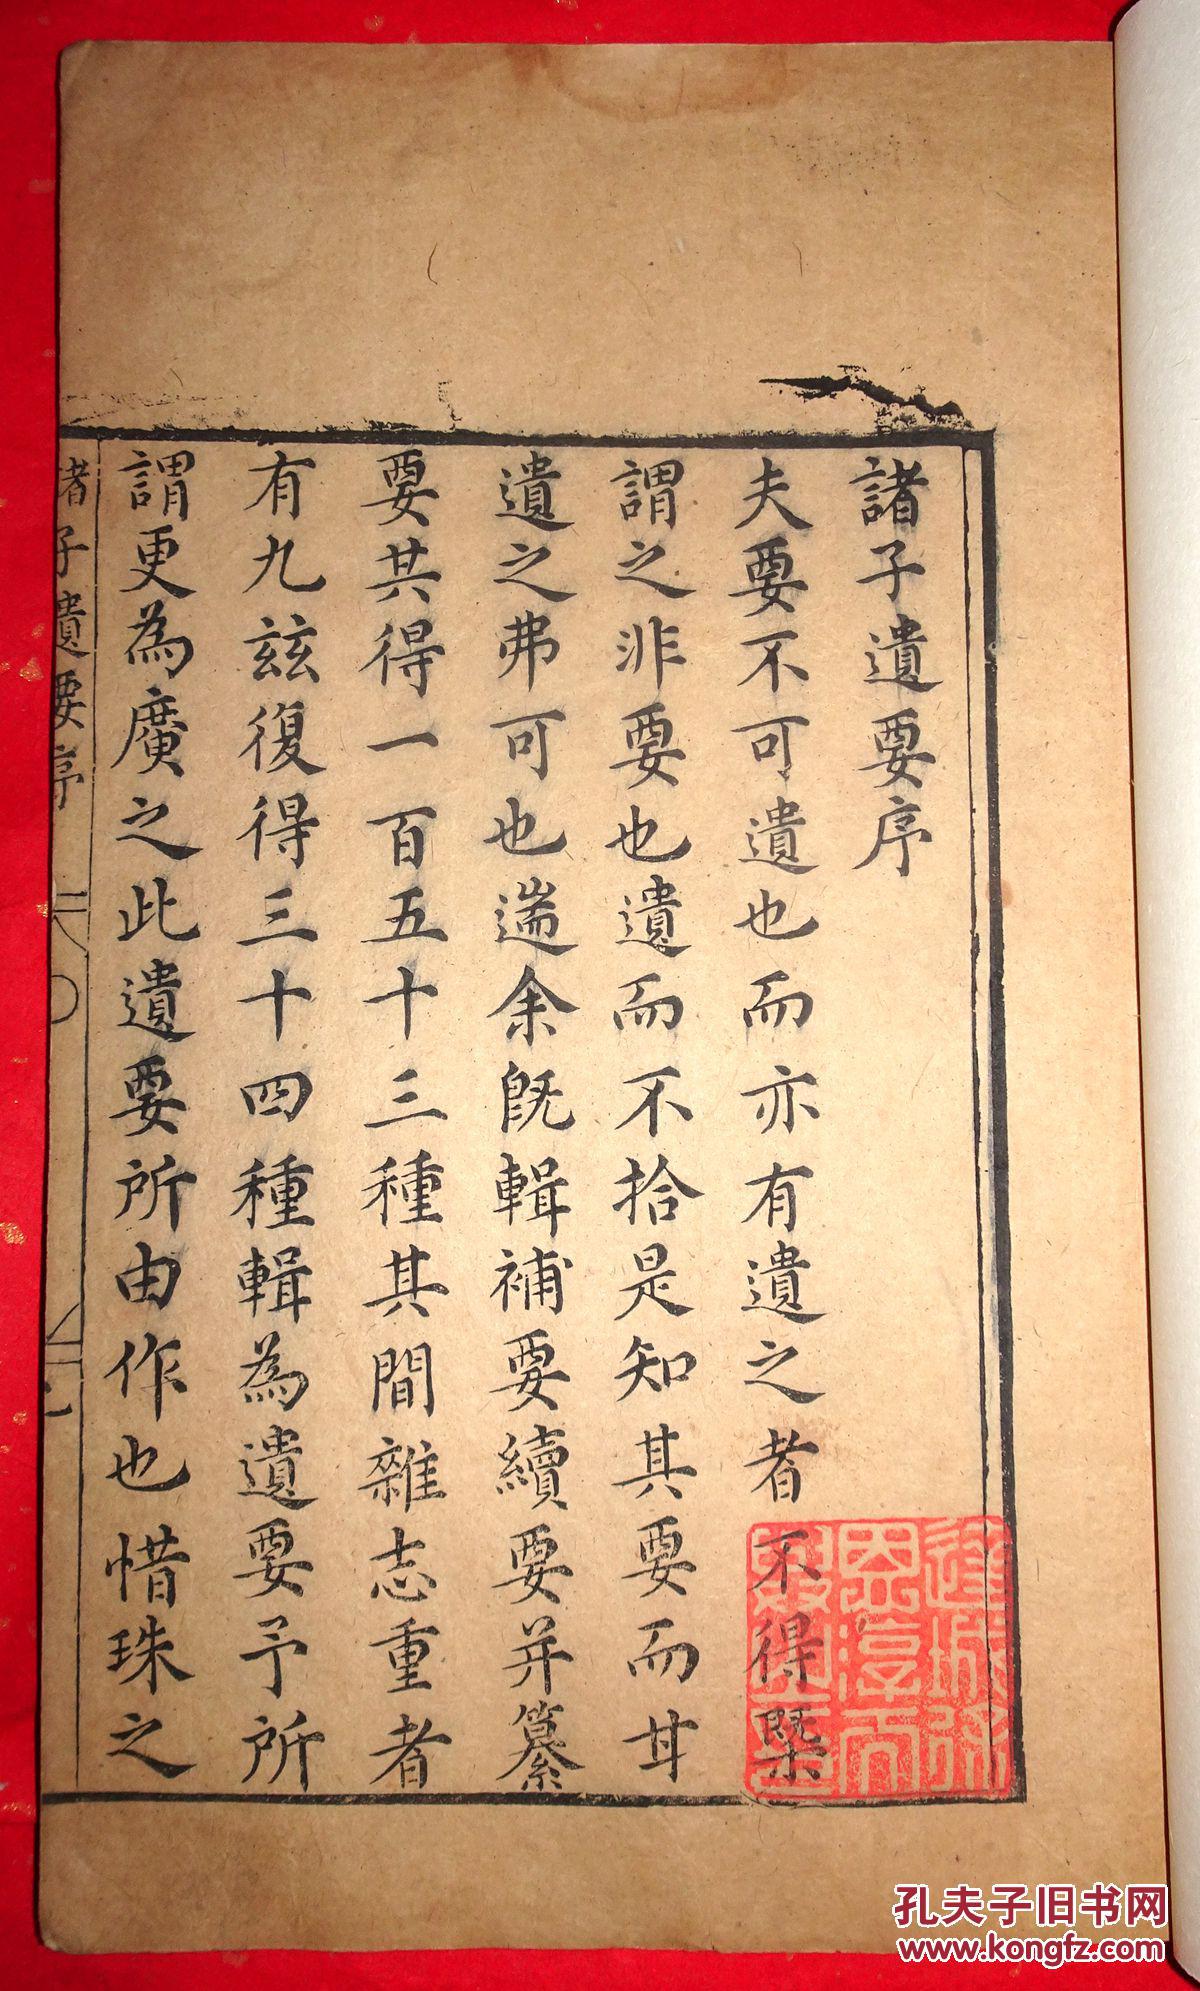 諸子遺要序
夫要不可遺也而亦有遺之者不得槩
謂之非要也遺而不拾是知其要而甘
遺之弗可也遄余旣輯補要續要并纂
要其得一百五十三種其間雜志重者
有九茲復得三十四種輯為遺要予所
謂更為廣之此遺要所由作也惜珠之
諸子遺要序
孔夫子旧书网
www.kongfz.com